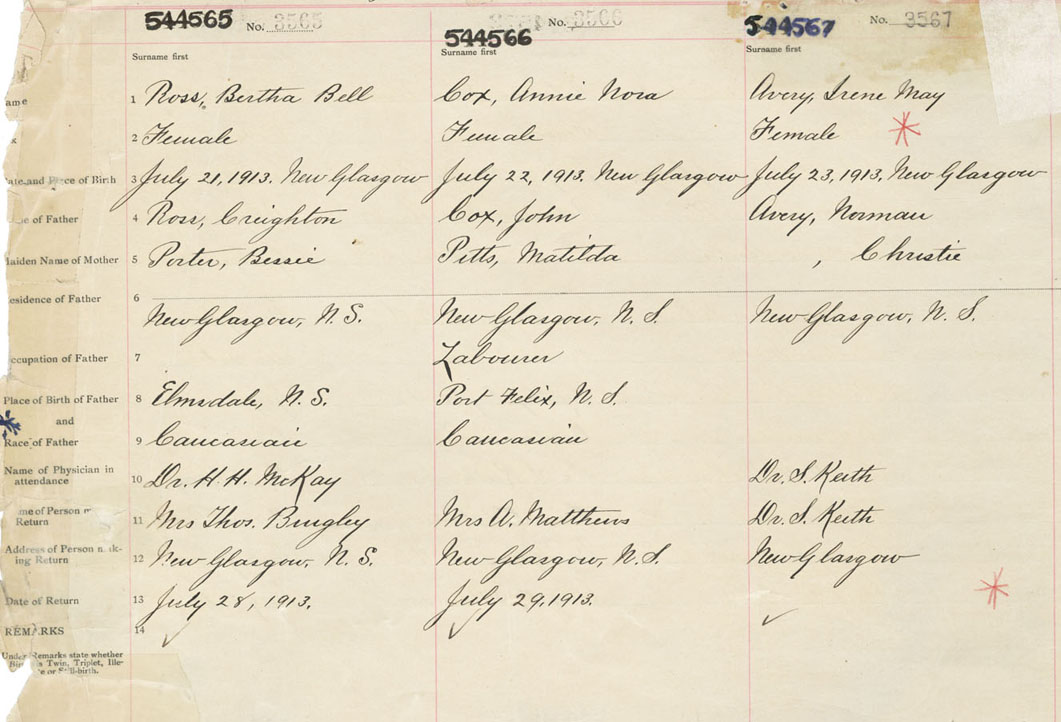 544565 No. 3565 544566 No. 3566 544567 No. 3567
Surname first Surname first Surname first
ame 1 Ross, Bertha Bell Cox, Annie Nora Avery, Irene May
x 2 Female Female Female
ate and Place of Birth 3 July 21, 1913. New Glasgow July 22, 1913. New Glasgow July 23, 1913, New Glasgow
e of Father 4 Ross, Creighton Cox, John Avery, Norman
aiden Name of Mother 5 Porter, Bessie Pitts, Matilda , Christie
esidence of Father 6 New Glasgow, N. S. New Glasgow, N. S. New Glasgow, N. S.
ccupation of Father 7 Labourer
Place of Birth of Father 8 Elmsdale, N. S. Port Felix, N. S.
and
Race of Father 9 Caucasian Caucasian
Name of Physician in
attendance 10 Dr. H. H. McKay Dr. S. Keith
me of Person m
Return 11 Mrs Thos. Bingley Mrs A. Matthews Dr. S. Keith
Address of Person mak-
ing Return 12 New Glasgow, N. S. New Glasgow, N. S. New Glasgow
Date of Return 13 July 28, 1913. July 29, 1913.
REMARKS 14
Under Remarks state whether
Bir s Twin, Triplet, Ille-
e or Still-birth.